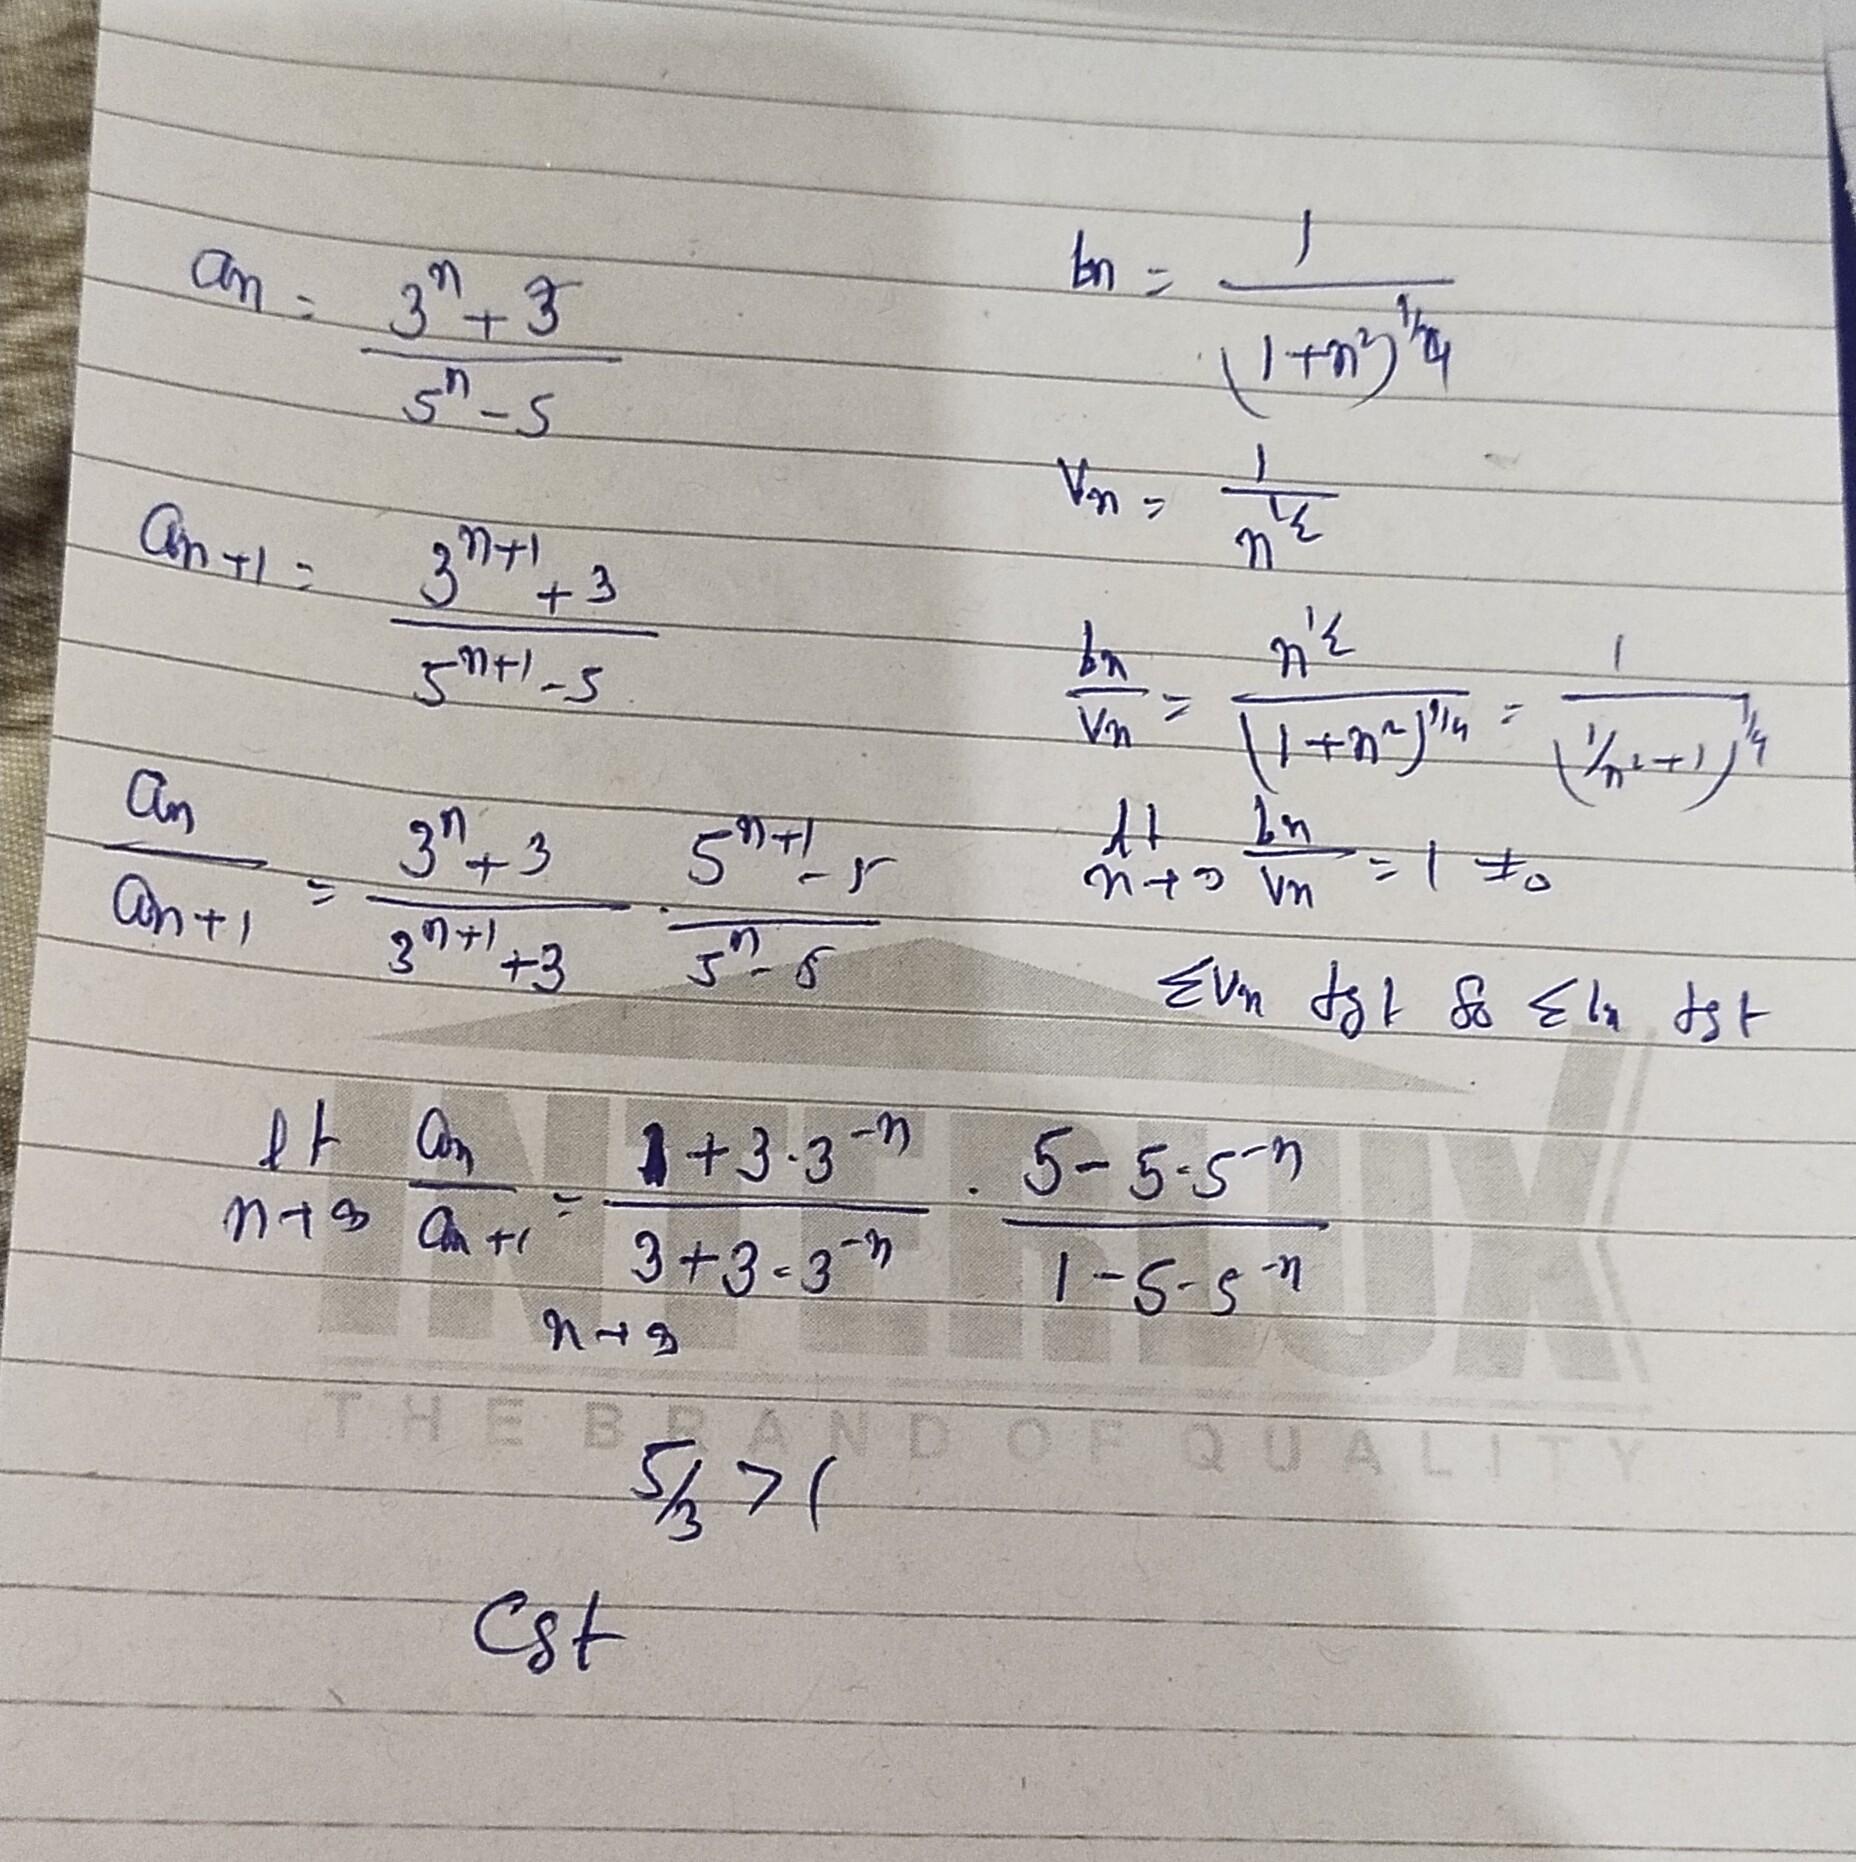 an = 3^n + 3 / 5^n - 5
an+1 = 3^n+1 + 3 / 5^n+1 - 5
an / an+1 = 3^n + 3 / 3^n+1 + 3 . 5^n+1 - 5 / 5^n - 5
lt n→∞ an / an+1 = 1 + 3.3^-n / 3 + 3.3^-n . 5 - 5.5^-n / 1 - 5.5^-n
n→∞
5/3 > 1
Cgt
bn = 1 / (1+n²)^1/4
Vn = 1 / n^1/2
bn / Vn = n^1/2 / (1+n²)^1/4 = 1 / (1/n²+1)^1/4
lt n→∞ bn / Vn = 1 ≠ 0
ΣVn dgt so Σbn dgt
INTERLUX
THE BRAND OF QUALITY